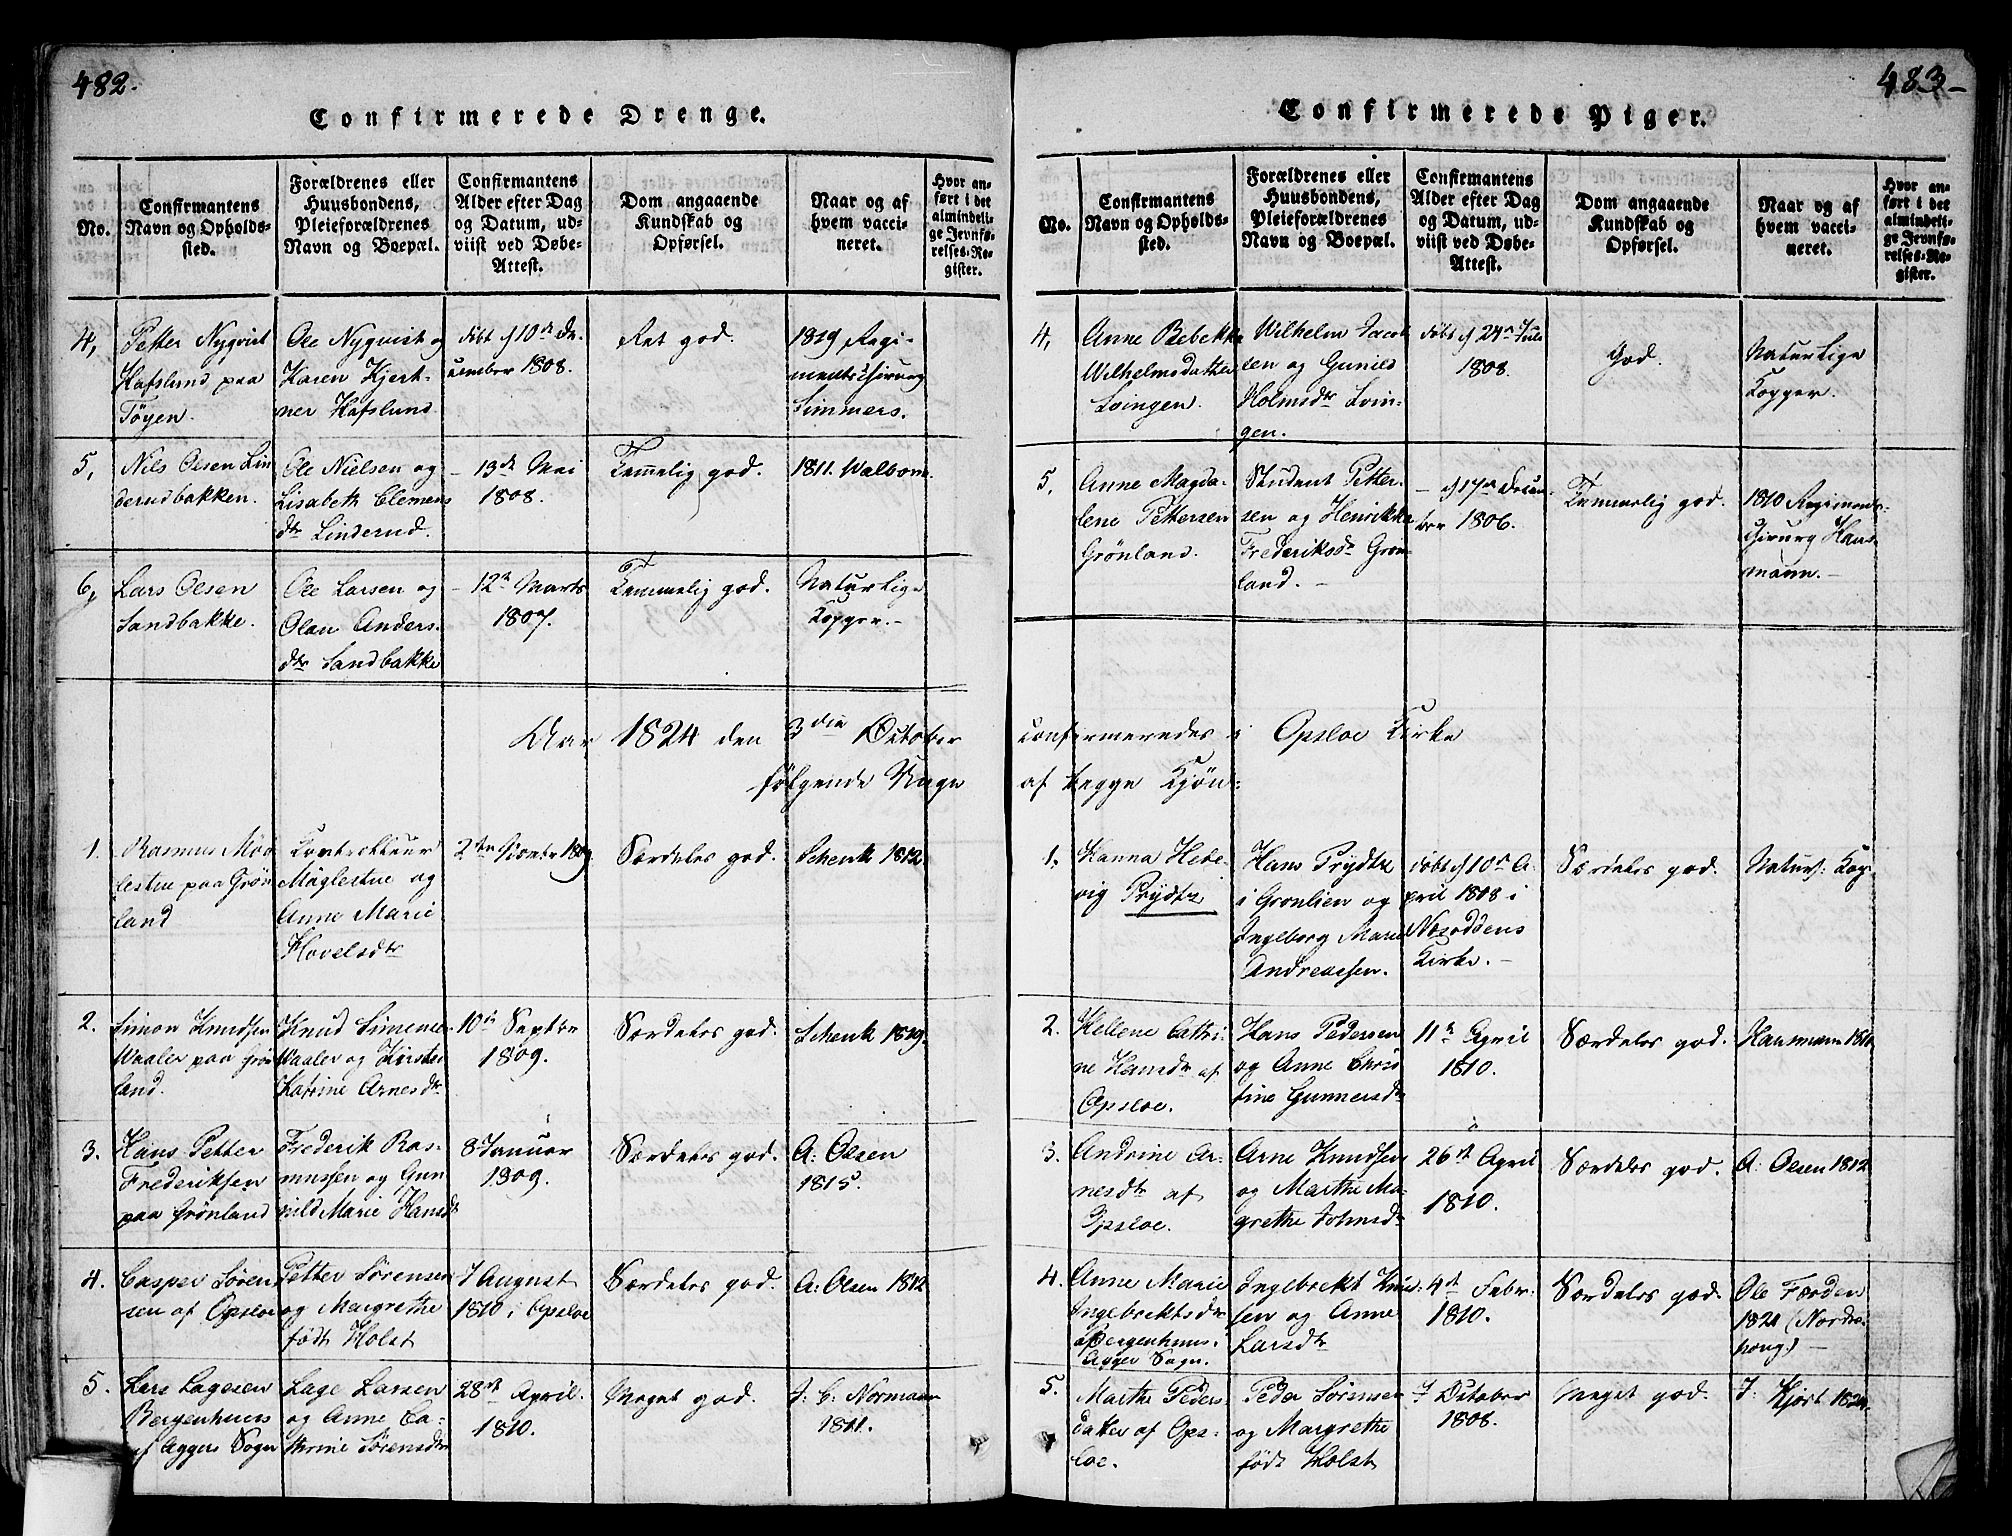 482.
Confirmerede Drenge.
No.
Confirmantens
Navn og Opholds-
sted.
Forældrenes eller
Huusbondens,
Pleieforældrenes
Navn og Boepæl.
Confirmantens
Alder efter Dag
og Datum, ud-
viist ved Døbe-
Attest.
Dom angaaende
Kundskab og
Opførsel.
Naar og af
hvem vacci-
neret.
Hvor an-
ført i det
almindeli-
ge Jevnfø-
relses-Re-
gister.
4,
Petter Nyqvist
Hafslund paa
Töyen.
Ole Nyqvist og
Karen Kjert-
ner Hafslund
död f 10de De-
cember 1808.
Ret god.
1819 Regi-
mentschirurg
Simmers.
5,
Nils Olsen Lin
derudbakken.
Ole Nielsen og
Lisabeth Clemens
dtr Linderud.
- 13de Mai
1808.
Temmelig god.
1811. Walbom.
6,
Lars Olsen
Sandbakke.
Ole Larsen og
Olau Anders-
dtr Sandbakke
- 12te Marts
1807.
Temmelig god.
Naturlige
Kopper.-
Aar 1824 den 3die October
følgende Unge
1.
Rasmus Mög
lestue paa Grön
land
Controlleur
Möglestue og
Anne Marie
Hovelsdtr
2den Novbr 1809.
Særdeles god.
Schenk 1812
2.
Simon Knudsen
Waaler paa Grön
land.
Knud Simensen
Waaler og Kirsten
Katrine Arnesdtr
10de Septbr
1809.
Særdeles god.
Schenk 1819.
3.
Hans Petter
Frederiksen
paa Grönland
Frederik Ras-
mussen og Gun
nild Marie Hansdtr
8 Januar
1809.
Særdeles god.
A: Olsen
1815.
4.
Casper Sören
sen af Opsloe
Petter Sörensen
og Margrethe
födt Holst
7 August
1810 i Opsloe
Særdeles god.
A: Olsen 1812
5.
Lars Lagesen
Bergenhuus
af Aggers Sogn
Lage Larsen
og Anne Ca-
thrine Sörensdtr
28de April.
1810.
Meget god.
J: C: Normann
1811.
483-
Confirmerede Piger.
No.
Confirmantens
Navn og Opholds-
sted.
Forældrenes eller
Huusbondens,
Pleieforældrenes
Navn og Boepæl.
Confirmantens
Alder efter Dag
og Datum, ud-
viist ved Døbe-
Attest.
Dom angaaende
Kundskab og
Opførsel.
Naar og af
hvem vacci-
neret.
Hvor an-
ført i det
almindeli-
ge Jevnfø-
relses-Re-
gister.
4,
Anne Bebekke
Wilhelmsdatter
Lvingen.
Wilhelm Jacob
sen og Gunild
Holmsdtr Lvin-
gen.
döbt f 24de Juli
1808.
God.
Naturlige
Kopper.
5,
Anne Magda-
lene Pettersen
Grönland.
Student Petter-
sen og Henrikke
Frederiksdtr Grön-
land. -
- f 17de Decem-
ber 1806.
Temmelig god.
1810 Regiments-
chirurg Haus-
mann.-
confirmeredes i Opsloe Kirke
af begge Kjön:
1.
Hanna Hede-
vig Prydtz
Hans Prydtz
i Gronlien og
Ingeborg Marie
Andreasen.
döbt f 10de A-
pril 1808 i
Næsoddens
Kirke.-
Særdeles god.
Naturl: Kop.
2.
Hellene Cathri-
ne Hansdtr af
Opsloe.
Hans Pedersen
og Anne Chris
tine Gunnersdtr
11te April
1810.
Særdeles god.
Hausmann 1810
3.
Andrine Ar-
nesdtr af
Opsloe.
Arne Knudsen
og Marthe Ma-
grethe Johnsdtr
26de April
1810.
Særdeles god.
A: Olsen 1812
4.
Anne Marie
Ingebrektsdtr
Bergenhuus.
Agger Sogn.
Ingebrekt Knud-
sen og Anne
Larsdtr
4de Febr:
1810.
Særdeles god.
Ole Færden
1821 (Nordre-
houg) -
5.
Marthe Peders
datter af Ops-
loe.
Peder Sörensen
og Margrethe
födt Holst
7 October
1808.
Meget god.
J: Hjort 1824